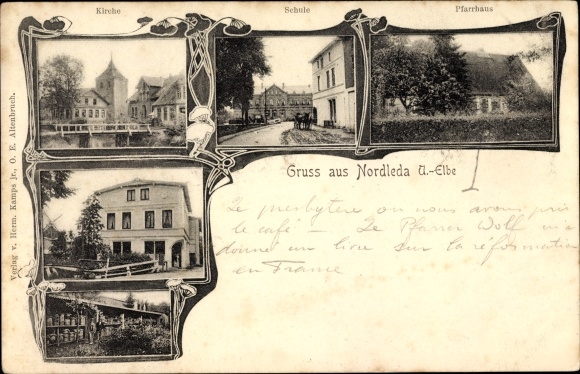 Kirche
Schule
Pfarrhaus
Gruss aus Nordleda U.-Elbe
Le presbytere ou nous avons pris
le café — Le Pfarrer Wolf m'a
donner un livre sur la réformation
en France
Verlag v. Herm. Kampa jr., O. E. Altenbruch.